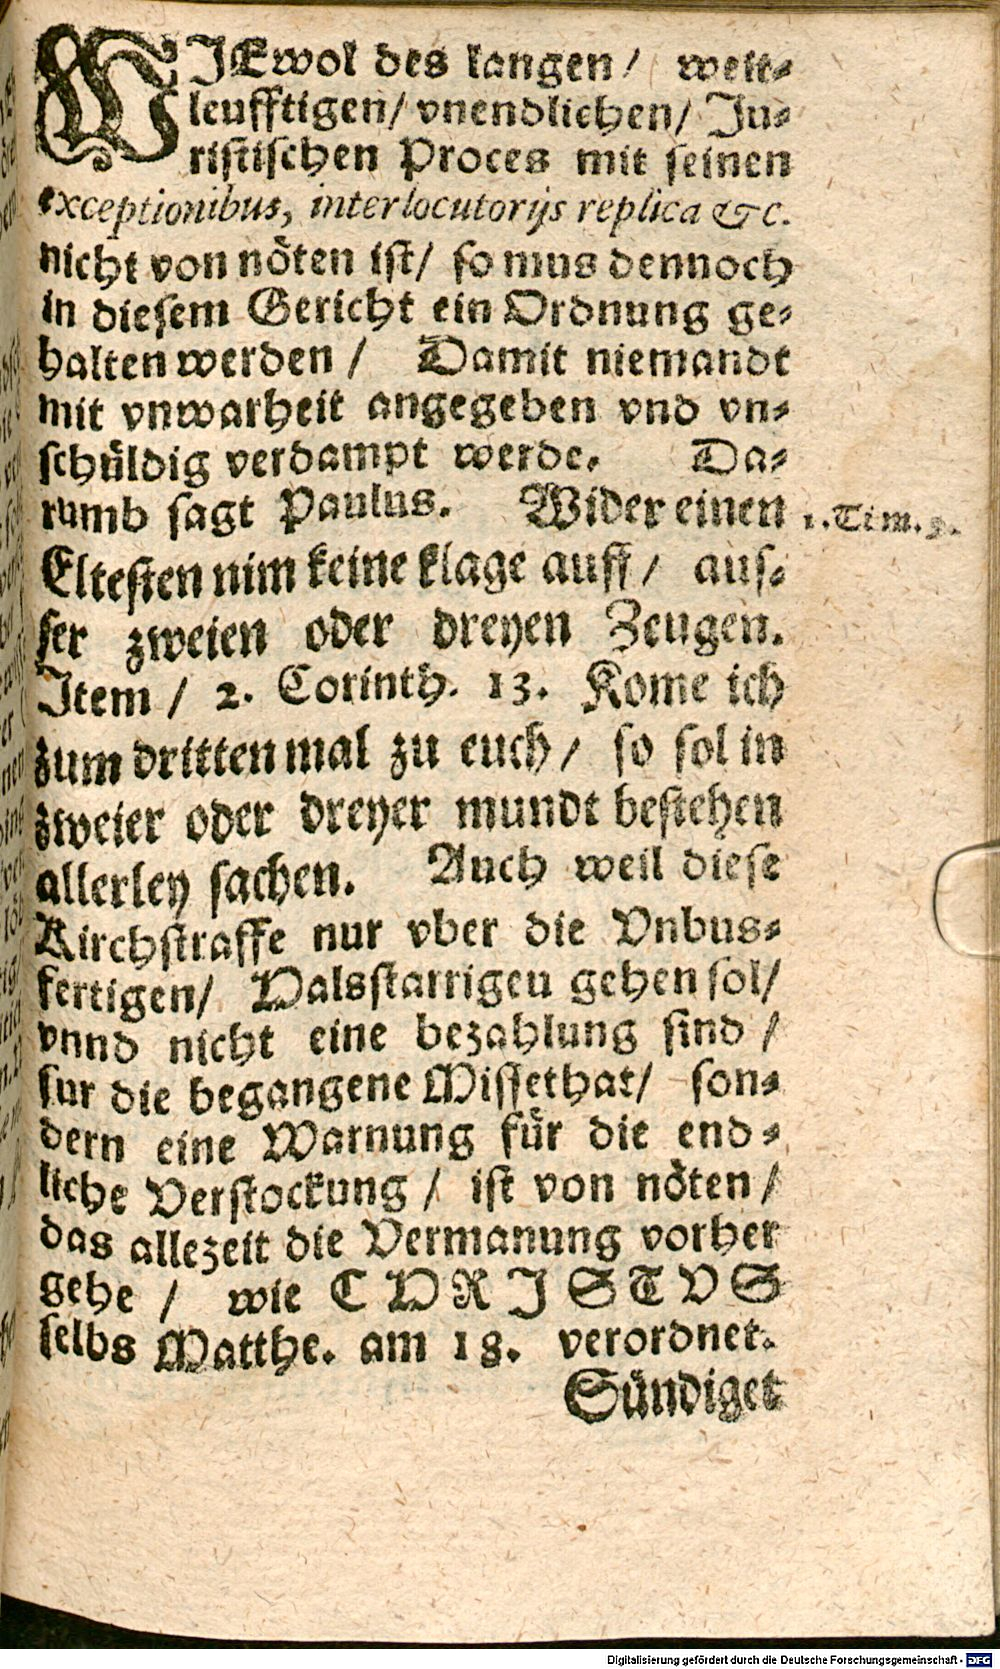 WIEwol des langen / weit⸗
leufftigen / vnendlichen / Ju⸗
ristischen Proces mit seinen
exceptionibus, interlocutorijs replica &c.
nicht von nöten ist / so mus dennoch
in diesem Gericht ein Ordnung ge⸗
halten werden / Damit niemandt
mit vnwarheit angegeben vnd vn⸗
schüldig verdampt werde. Da⸗
rumb sagt Paulus. Wider einen
1. Tim. 5.
Eltesten nim keine klage auff / aus⸗
ser zweien oder dreyen Zeugen.
Item / 2. Corinth. 13. Kome ich
zum dritten mal zu euch / so sol in
zweier oder dreyer mundt bestehen
allerley sachen. Auch weil diese
Kirchstraffe nur vber die Vnbus⸗
fertigen / Halsstarrigen gehen sol /
vnnd nicht eine bezahlung sind /
fur die begangene Missethat / son⸗
dern eine Warnung für die end⸗
liche Verstockung / ist von nöten /
das allezeit die Vermanung vorher
gehe / wie CHRISTVS
selbs Matthe. am 18. verordnet.
Sündiget
Digitalisierung gefördert durch die Deutsche Forschungsgemeinschaft - DFG